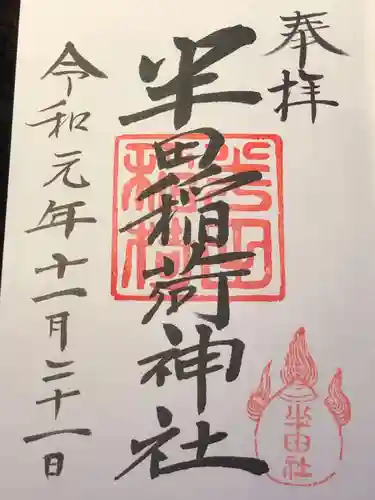 奉拝
半田稲荷神社
令和元年十一月二十一日
半田社